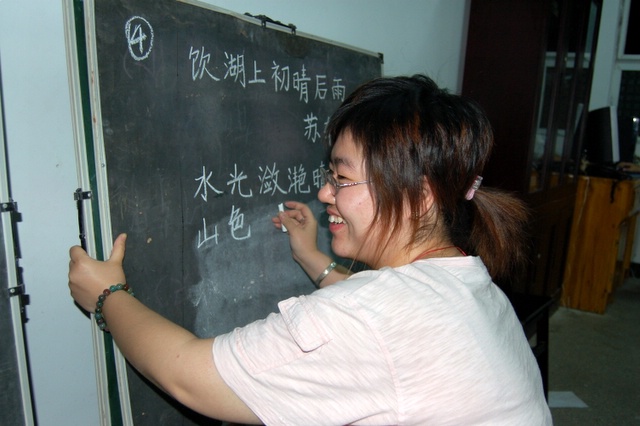 ④
饮湖上初晴后雨
苏
水光潋滟晴
山色